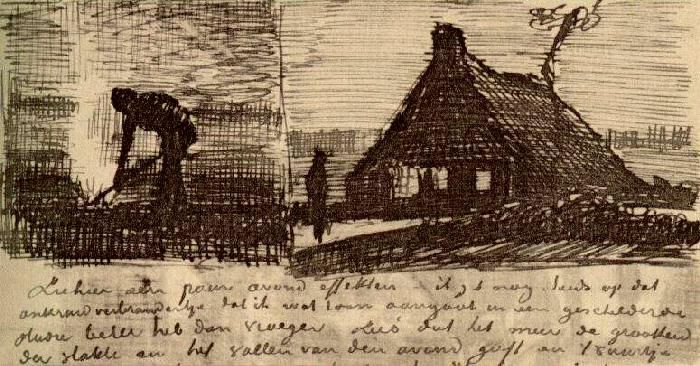 Ziehier een paar avond effekten – ik nog steeds op dat
onkruidverbrandertje dat ik wat toon aangaat in een geschilderde
studie beter heb dan vroeger dat het meer de grootheid
der vlakte en het vallen van den avond geeft en 't vuurtje